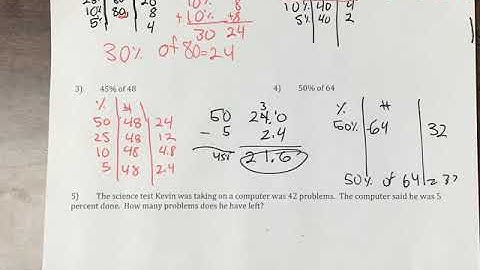 10% 80 8
5% 4
10% 8
+10% +8
30 24
30% of 80=24
10% 40 4
5% 40 2
3) 45% of 48
4) 50% of 64
% #
50 48 24
25 48 12
10 48 4.8
5 48 2.4
3
50 24.0
- 5 2.4
45% 21.6
% #
50% 64 32
50% of 64 = 32
5) The science test Kevin was taking on a computer was 42 problems. The computer said he was 5
percent done. How many problems does he have left?